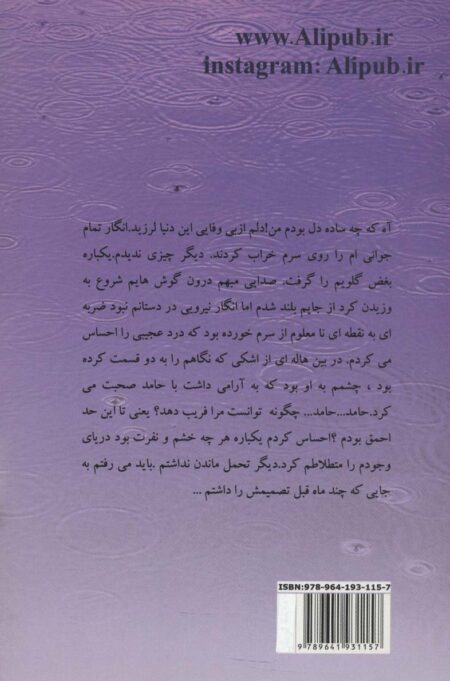 www.Alipub.ir
instagram: Alipub.ir
آه که چه ساده دل بودم من!دلم ازبی وفایی این دنیا لرزید.انگار تمام
جوانی ام را روی سرم خراب کردند. دیگر چیزی ندیدم.یکباره
بغض گلویم را گرفت. صدایی مبهم درون گوش هایم شروع به
وزیدن کرد از جایم بلند شدم اما انگار نیرویی در دستانم نبود ضربه
ای به نقطه ای نا معلوم از سرم خورده بود که درد عجیبی را احساس
می کردم. در بین هاله ای از اشکی که نگاهم را به دو قسمت کرده
بود ، چشمم به او بود که به آرامی داشت با حامد صحبت می
کرد.حامد...حامد... چگونه توانست مرا فریب دهد؟ یعنی تا این حد
احمق بودم ؟احساس کردم یکباره هر چه خشم و نفرت بود دریای
وجودم را متطلاطم کرد.دیگر تحمل ماندن نداشتم .باید می رفتم به
جایی که چند ماه قبل تصمیمش را داشتم ...
ISBN:978-964-193-115-7
9 789641 931157